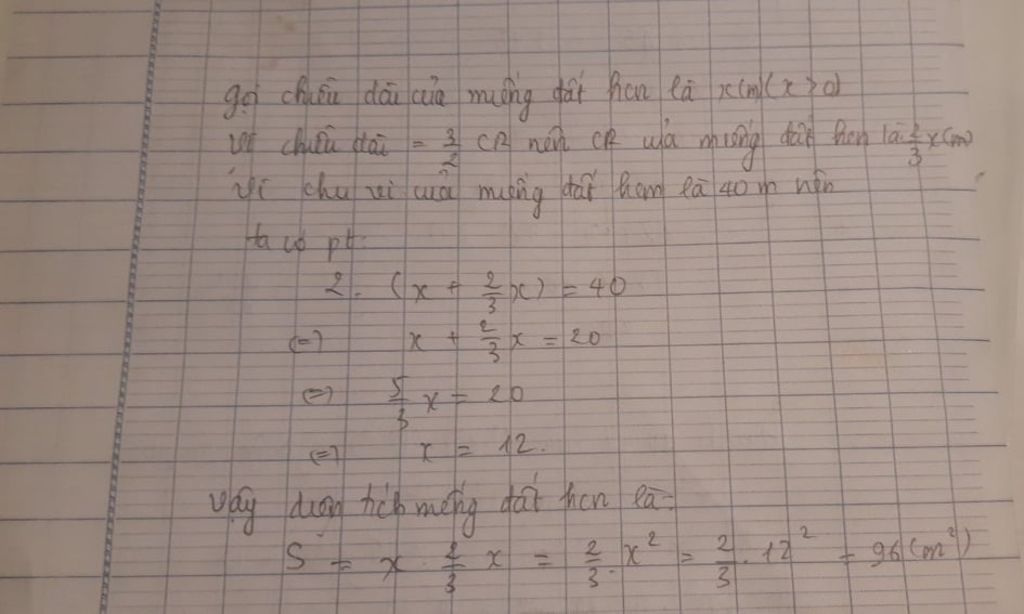 gọi chiều dài của miếng đất hcn là x(m)(x>0)
Vì chiều dài = 3/2 CR nên CR của miếng đất hcn là 2/3 x(m)
Vì chu vi của miếng đất hcn là 40 m nên
ta có pt:
2. (x + 2/3 x) = 40
(=) x + 2/3 x = 20
(=) 5/3 x = 20
(=) x = 12.
Vậy diện tích miếng đất hcn là:
S = x . 2/3 x = 2/3 . x² = 2/3 . 12² = 96 (m²)